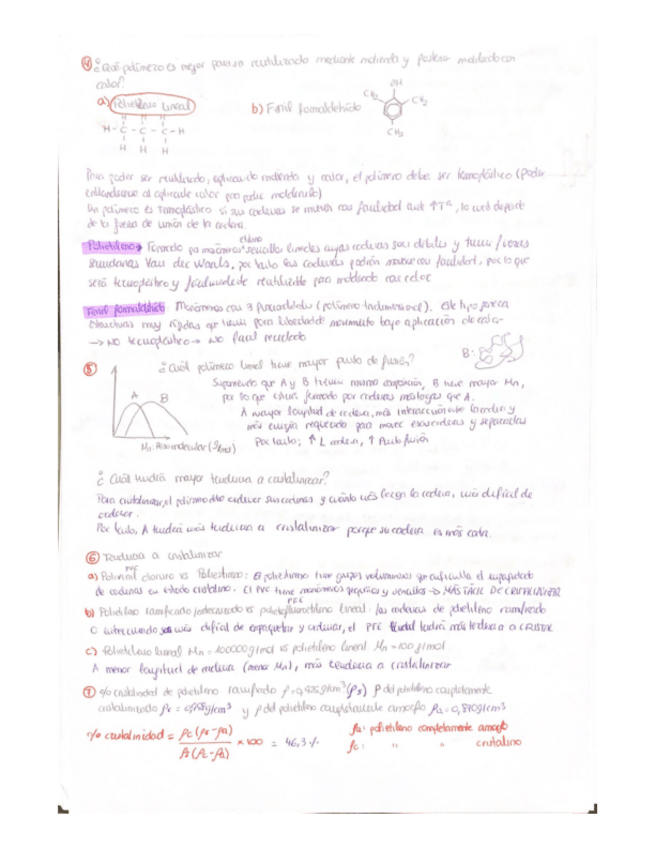 ④ ¿Cuál polímero es mejor para su reutilizado mediante molienda y posterior moldeado con
calor?
a) Polietileno lineal b) Fenil formaldehido
OH
CH2 CH2
H H H
H-C-C-C-H
H H H
CH2
Para poder ser reutilizado, aplicando molienda y calor, el polímero debe ser termoplástico (Poder
al aplicarle calor para poder moldearlo)
Un polímero es termoplástico si sus cadenas se mueven con facilidad ante ↑Tª, lo cual depende
de la fuerza de unión de la cadena.
etileno
Polietileno → Formado por monómeros sencillos lineales cuyas cadenas son débiles y tienen fuerzas
secundarias Van der Waals, por tanto las cadenas podrán moverse con facilidad, por lo que
será termoplástico y fácilmente reutilizable para moldeado con calor
Fenil formaldehido Monómeros con 3 funcionalidades (polímero tridimensional). Este tipo genera
estructuras muy rígidas que tienen poca libertad de movimiento bajo aplicación de calor
→ No termoplástico → No fácil reciclado
B:
⑤ ¿Cuál polímero lineal tiene mayor punto de fusión?
A B
Suponiendo que A y B tienen misma composición, B tiene mayor Mn,
por lo que estará formado por cadenas más largas que A.
A mayor longitud de cadena, más interacción entre la cadena y
más energía requerida para mover esas cadenas y separarlas
Por tanto; ↑ L cadena, ↑ Punto fusión
Mn: Peso molecular
¿Cuál tendrá mayor tendencia a cristalizar?
Para cristalizar, el polímero debe ordenar sus cadenas y cuánto más larga la cadena, más difícil de
ordenar.
Por tanto, A tendrá más tendencia a cristalinizar porque su cadena es más corta.
⑥ Tendencia a cristalinizar
PVC
a) Polivinil cloruro vs Poliestireno: El poliestireno tiene grupos voluminosos que dificulta el empaquetado
de cadenas en estado cristalino. El PVC tiene monómeros pequeños y sencillos → MÁS FÁCIL DE CRISTALINIZAR
b) Polietileno ramificado entrecruzado vs politetrafluoroetileno lineal: las cadenas de polietileno ramificado
o entrecruzado son más difícil de empaquetar y ordenar, el lineal tendrá más tendencia a CRISTAL
c) Polietileno lineal Mn = 100000g/mol vs polietileno lineal Mn = 100 g/mol
A menor longitud de cadena (menor Mn), más tendencia a cristalinizar
⑦ % cristalinidad de polietileno ramificado ρ=0,925g/cm³ (ρs) ρ del polietileno completamente
cristalinizado ρc = 0,998g/cm³ y ρ del polietileno completamente amorfo ρa = 0,870g/cm³
% cristalinidad = ρc(ρs-ρa) / ρs(ρc-ρa) × 100 = 46,3 %
ρa: polietileno completamente amorfo
ρc: " " cristalino